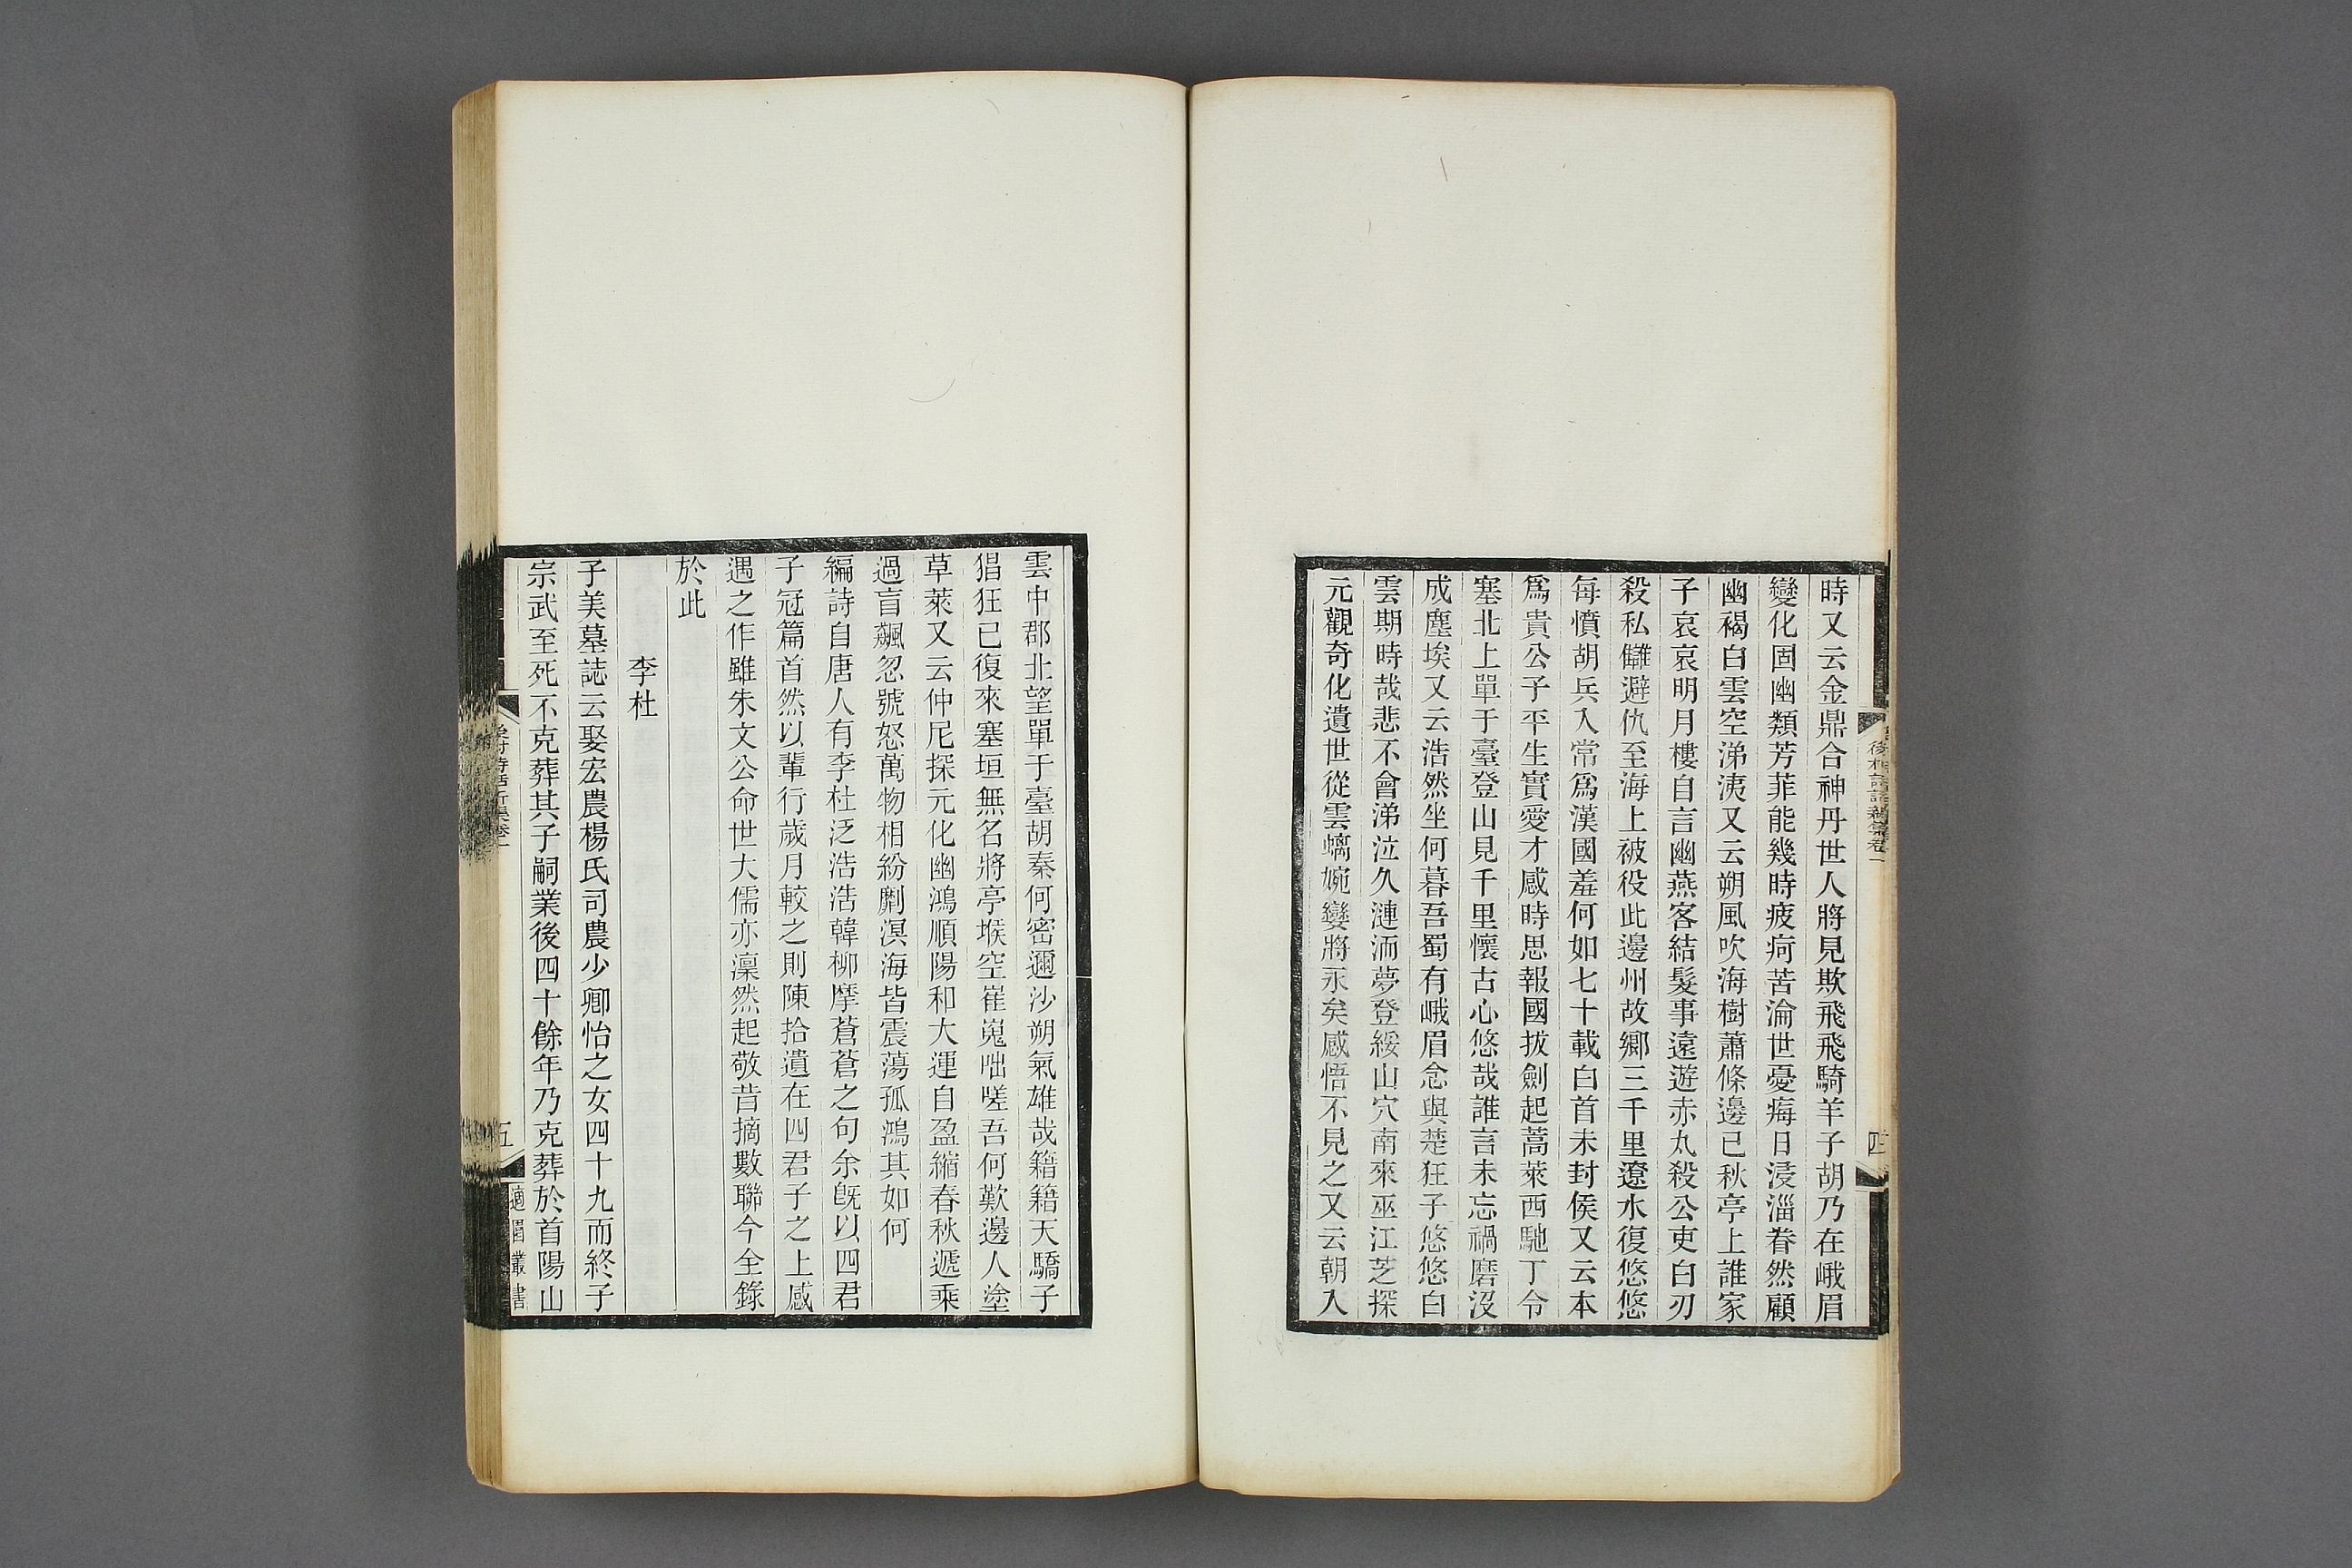 時又云金鼎合神丹世人將見欺飛飛騎羊子胡乃在峨眉
變化固幽類芳菲能幾時疲痾苦淪世憂痗日浸淄眷然顧
幽褐白雲空涕洟又云朔風吹海樹蕭條邊已秋亭上誰家
子哀哀明月樓自言幽燕客結髮事遠遊赤丸殺公吏白刃
殺私讎避仇至海上被役此邊州故鄉三千里遼水復悠悠
每憤胡兵入常爲漢國羞何如七十載白首未封侯又云本
爲貴公子平生實愛才感時思報國拔劍起蒿萊西馳丁令
塞北上單于臺登山見千里懷古心悠哉誰言未忘禍磨沒
成塵埃又云浩然坐何暮吾蜀有峨眉念與楚狂子悠悠白
雲期時哉悲不會涕泣久漣洏夢登綏山穴南來巫江芝探
元觀奇化遺世從雲螭婉孌將永矣感悟不見之又云朝入
後村詩話新集卷一
四
雲中郡北望單于臺胡秦何密邇沙朔氣雄哉籍籍天驕子
猖狂已復來塞垣無名將亭堠空崔嵬咄嗟吾何歎邊人塗
草萊又云仲尼探元化幽鴻順陽和大運自盈縮春秋遞乘
過盲飆忽號怒萬物相紛劘溟海皆震蕩孤鴻其如何
編詩自唐人有李杜泛浩浩韓柳摩蒼蒼之句余旣以四君
子冠篇首然以輩行歲月較之則陳拾遺在四君子之上感
遇之作雖朱文公命世大儒亦凜然起敬昔摘數聯今全錄
於此
李杜
子美墓誌云娶宏農楊氏司農少卿怡之女四十九而終子
宗武至死不克葬其子嗣業後四十餘年乃克葬於首陽山
後村詩話新集卷一
五
適園叢書